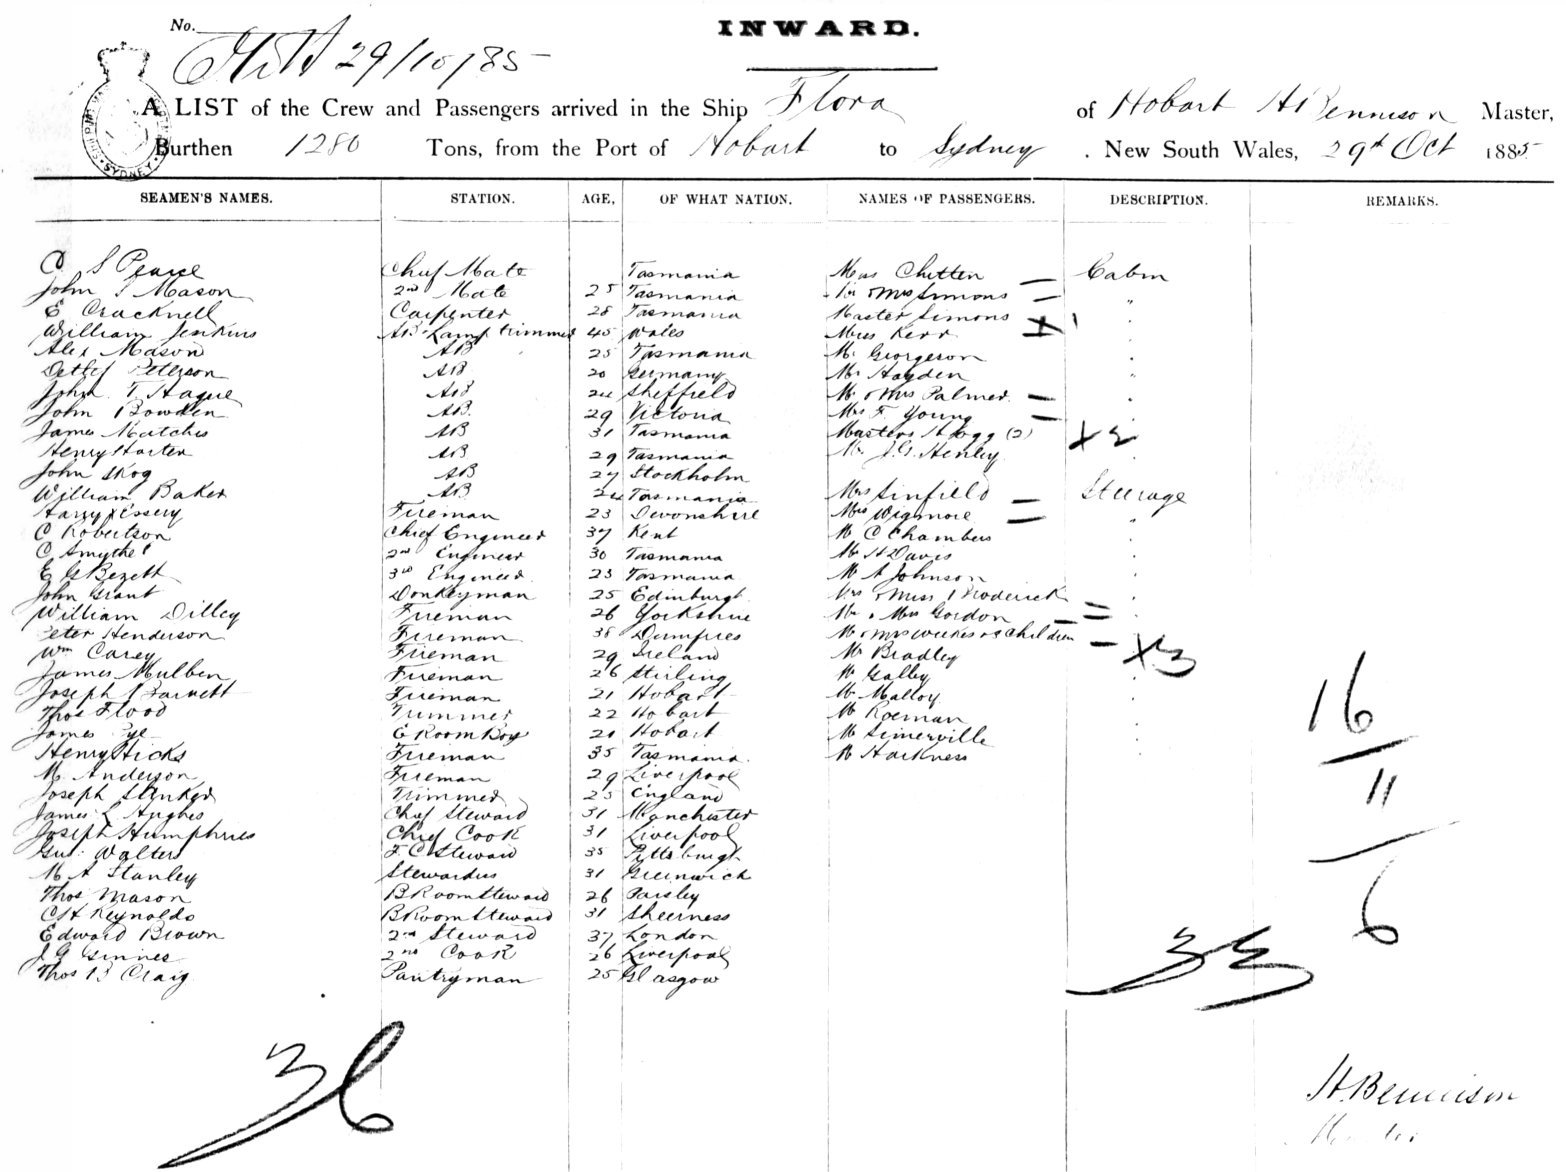 No.
INWARD.
29/10/85
A LIST of the Crew and Passengers arrived in the Ship Flora of Hobart H Bennison Master,
Burthen 1280 Tons, from the Port of Hobart to Sydney . New South Wales, 29th Oct 1885
SYDNEY
SEAMEN'S NAMES. STATION. AGE, OF WHAT NATION. NAMES OF PASSENGERS. DESCRIPTION. REMARKS.
C S Pearce Chief Mate Tasmania Cabin
John S Mason 2nd Mate 25 Tasmania Mr & Mrs Simons "
E Cracknell Carpenter 28 Tasmania Master Simons "
William Jenkins AB Lamp trimmer 45 Wales Miss Kerr X 1 "
Alex Mason AB 25 Tasmania Mr Georgeson "
Peterson AB 20 Germany Mr Hayden "
John T Hague AB 24 Sheffield Mr & Mrs Palmer "
John Bowden AB 29 Victoria Mrs F Young "
James AB 31 Tasmania Masters Hogg (2) X 2
Henry Harter AB 29 Tasmania Mr J.G. Henley "
John Skog AB 27 Stockholm
William Baker AB 24 Tasmania Mrs Sinfield Steerage
Harry Fireman 23 Devonshire Mrs Wigmore "
C Robertson Chief Engineer 37 Kent Mr C Chambers "
C Smythe 2nd Engineer 30 Tasmania Mr H Davis "
E G Bezett 3rd Engineer 23 Tasmania Mr A Johnson "
John Grant Donkeyman 25 Edinburgh Mrs & Miss Broderick "
William Dilley Fireman 26 Yorkshire Mr & Mrs Gordon "
Peter Henderson Fireman 38 Dumfries Mr & Mrs Weekes & 3 Children
Wm Carey Fireman 29 Ireland Mr Bradley X 3
James Mulben Fireman 26 Stirling Mr Galley "
Joseph Barnett Fireman 21 Hobart Mr Malloy "
Thos Flood Trimmer 22 Hobart Mr Roeman "
James Pye E Room Boy 20 Hobart Mr Simerville "
Henry Hicks Fireman 35 Tasmania Mr Harkness "
M Anderson Fireman 29 Liverpool
Joseph Trimmer 25 England
James L Hughes Chief Steward 31 Manchester
Joseph Humphries Chief Cook 31 Liverpool
Walter F.C Steward 35 Pittsburgh
M A Stanley Stewardess 31 Greenwich
Thos Mason B Room Steward 26 Paisley
C H Reynolds B Room Steward 31 Sheerness
Edward Brown 2nd Steward 37 London
J G Ginnes 2nd Cook 26 Liverpool
Thos B Craig Pantryman 25 Glasgow
16
11
6
33
36
H. Bennison
Master